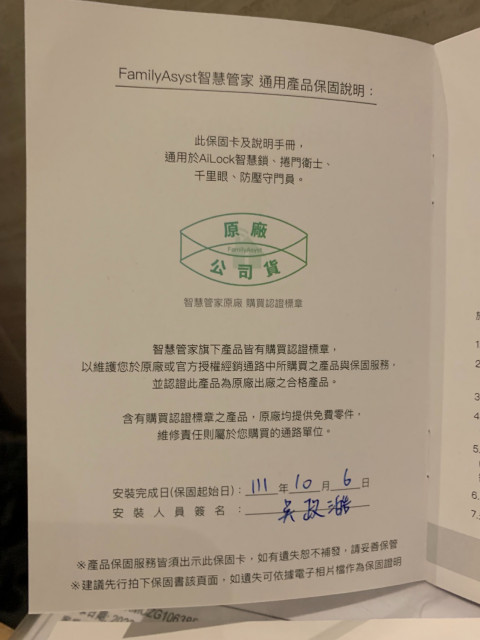 FamilyAsyst智慧管家 通用產品保固說明：
此保固卡及說明手冊，
通用於AiLock智慧鎖、捲門衛士、
千里眼、防壓守門員。
原廠
FamilyAsyst
公司貨
智慧管家原廠 購買認證標章
智慧管家旗下產品皆有購買認證標章，
以維護您於原廠或官方授權經銷通路中所購買之產品與保固服務，
並認證此產品為原廠出廠之合格產品。
含有購買認證標章之產品，原廠均提供免費零件，
維修責任則屬於您購買的通路單位。
安裝完成日(保固起始日)：111年10月6日
安裝人員簽名：吳政
※產品保固服務皆須出示此保固卡、如有遺失恕不補發，請妥善保管
※建議先行拍下保固書該頁面，如遺失可依據電子相片檔作為保固證明